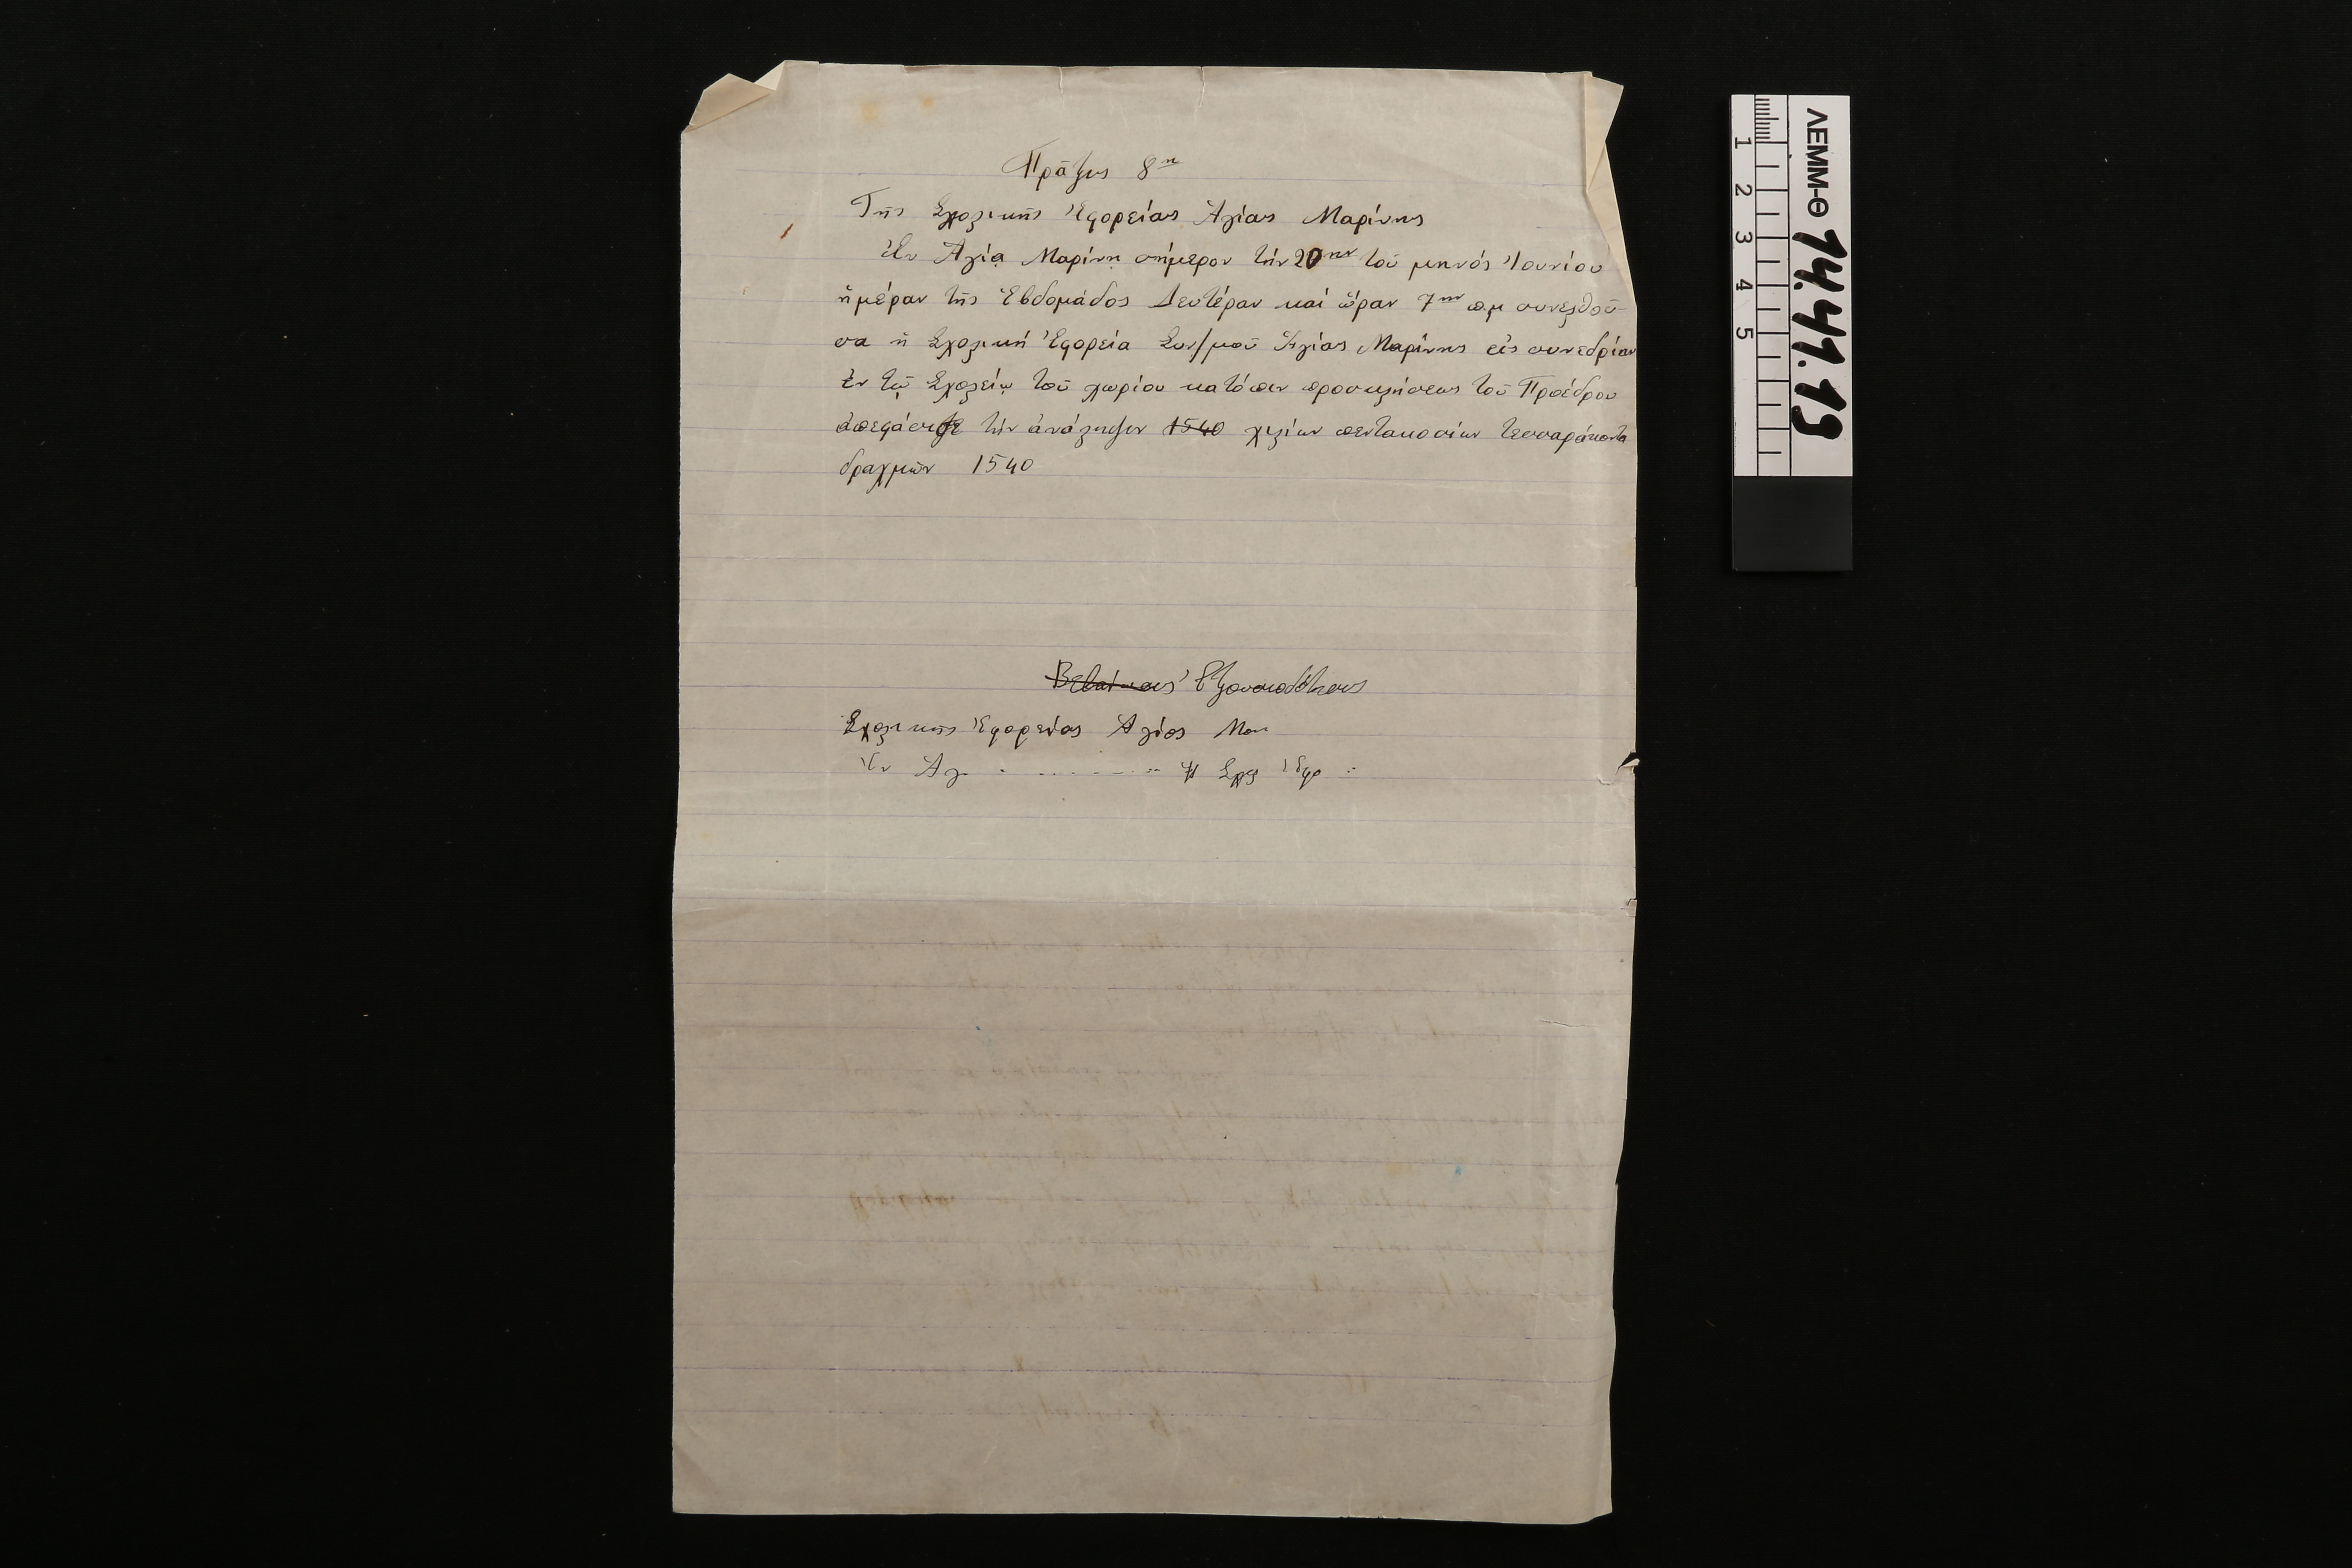 Πρᾶξις 8η
Τῆς Σχολικῆς Ἐφορείας Ἁγίας Μαρίνης
Ἐν Ἁγίᾳ Μαρίνῃ σήμερον τήν 20ην τοῦ μηνός Ἰουνίου
ἡμέραν τῆς Ἑβδομάδος Δευτέραν καί ὥραν 7ην π.μ συνελθοῦ-
σα ἡ Σχολική Ἐφορεία Συν/μοῦ Ἁγίας Μαρίνης εἰς συνεδρίαν
ἐν τῷ Σχολείῳ τοῦ χωρίου κατόπιν προσκλήσεως τοῦ Προέδρου
ἀπεφάσισε τήν ἀνάληψιν 1540 χιλίων πεντακοσίων τεσσαράκοντα
δραχμῶν 1540
Βεβαίωσις Ἐξουσιοδότησις
Σχολικῆς Ἐφορείας Ἁγίας Μαρ
Ἐν Ἁγ. . - - - - - - Ἡ Σχολ Ἐφορ
ΛΕΜΜ-Θ 14.41.19
1 2 3 4 5